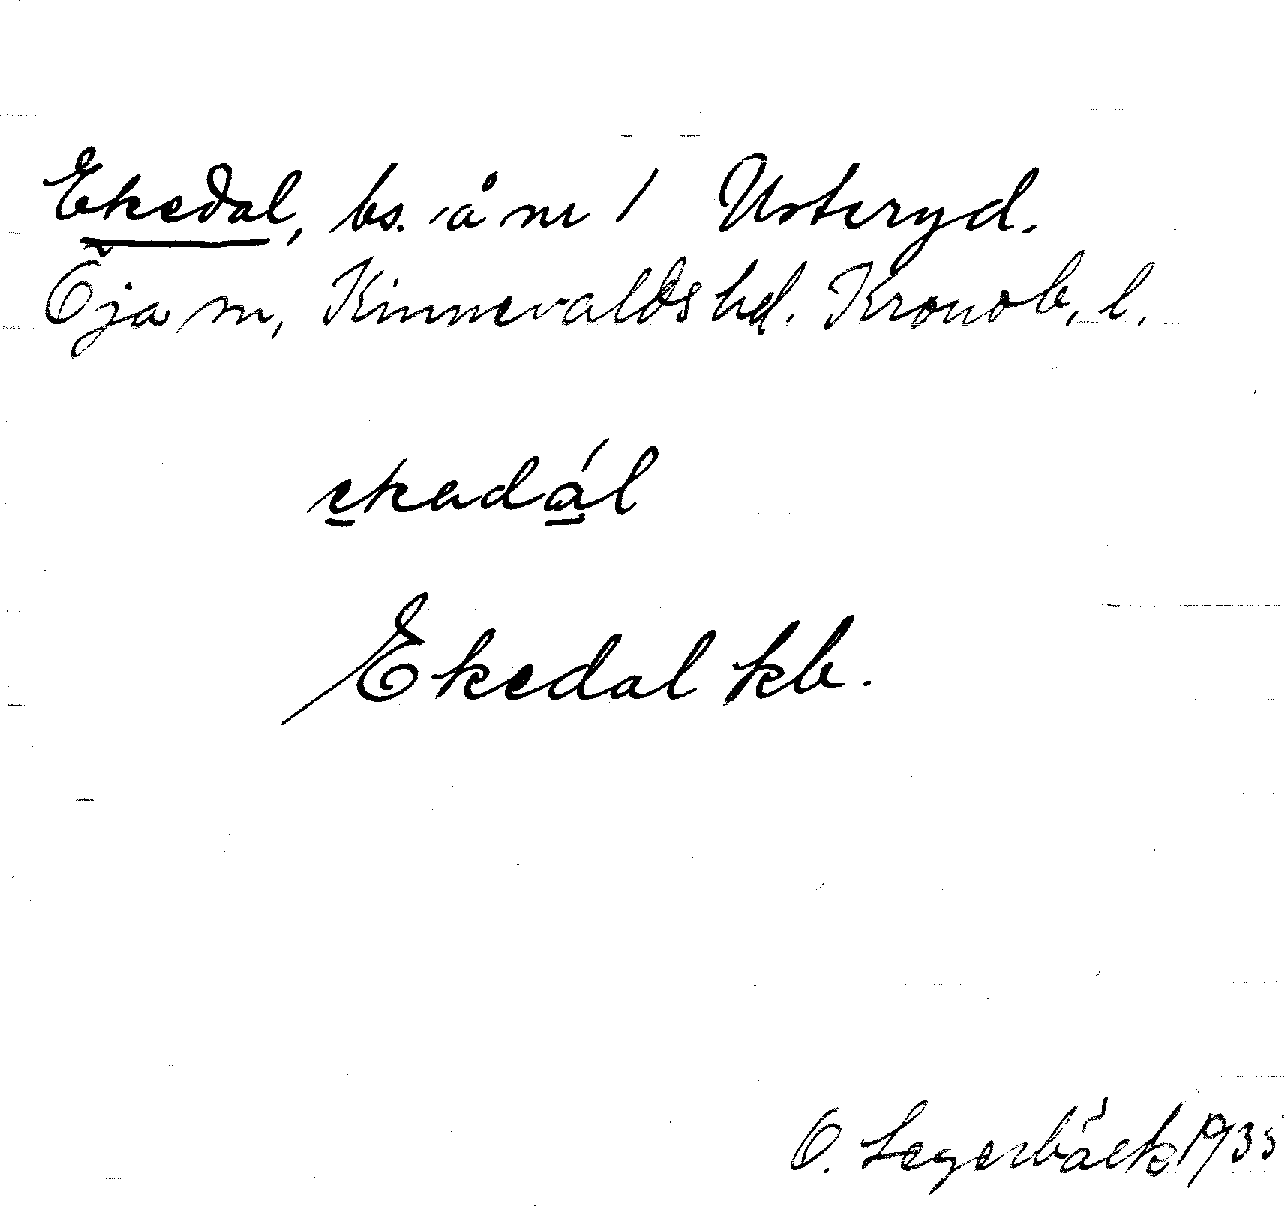 Ekedal, bs. å nr 1 Usteryd.
Öja sn, Kinnevalds hd. Kronob. l.
ekadál
Ekedal kb.
O. Segerbäck 1935